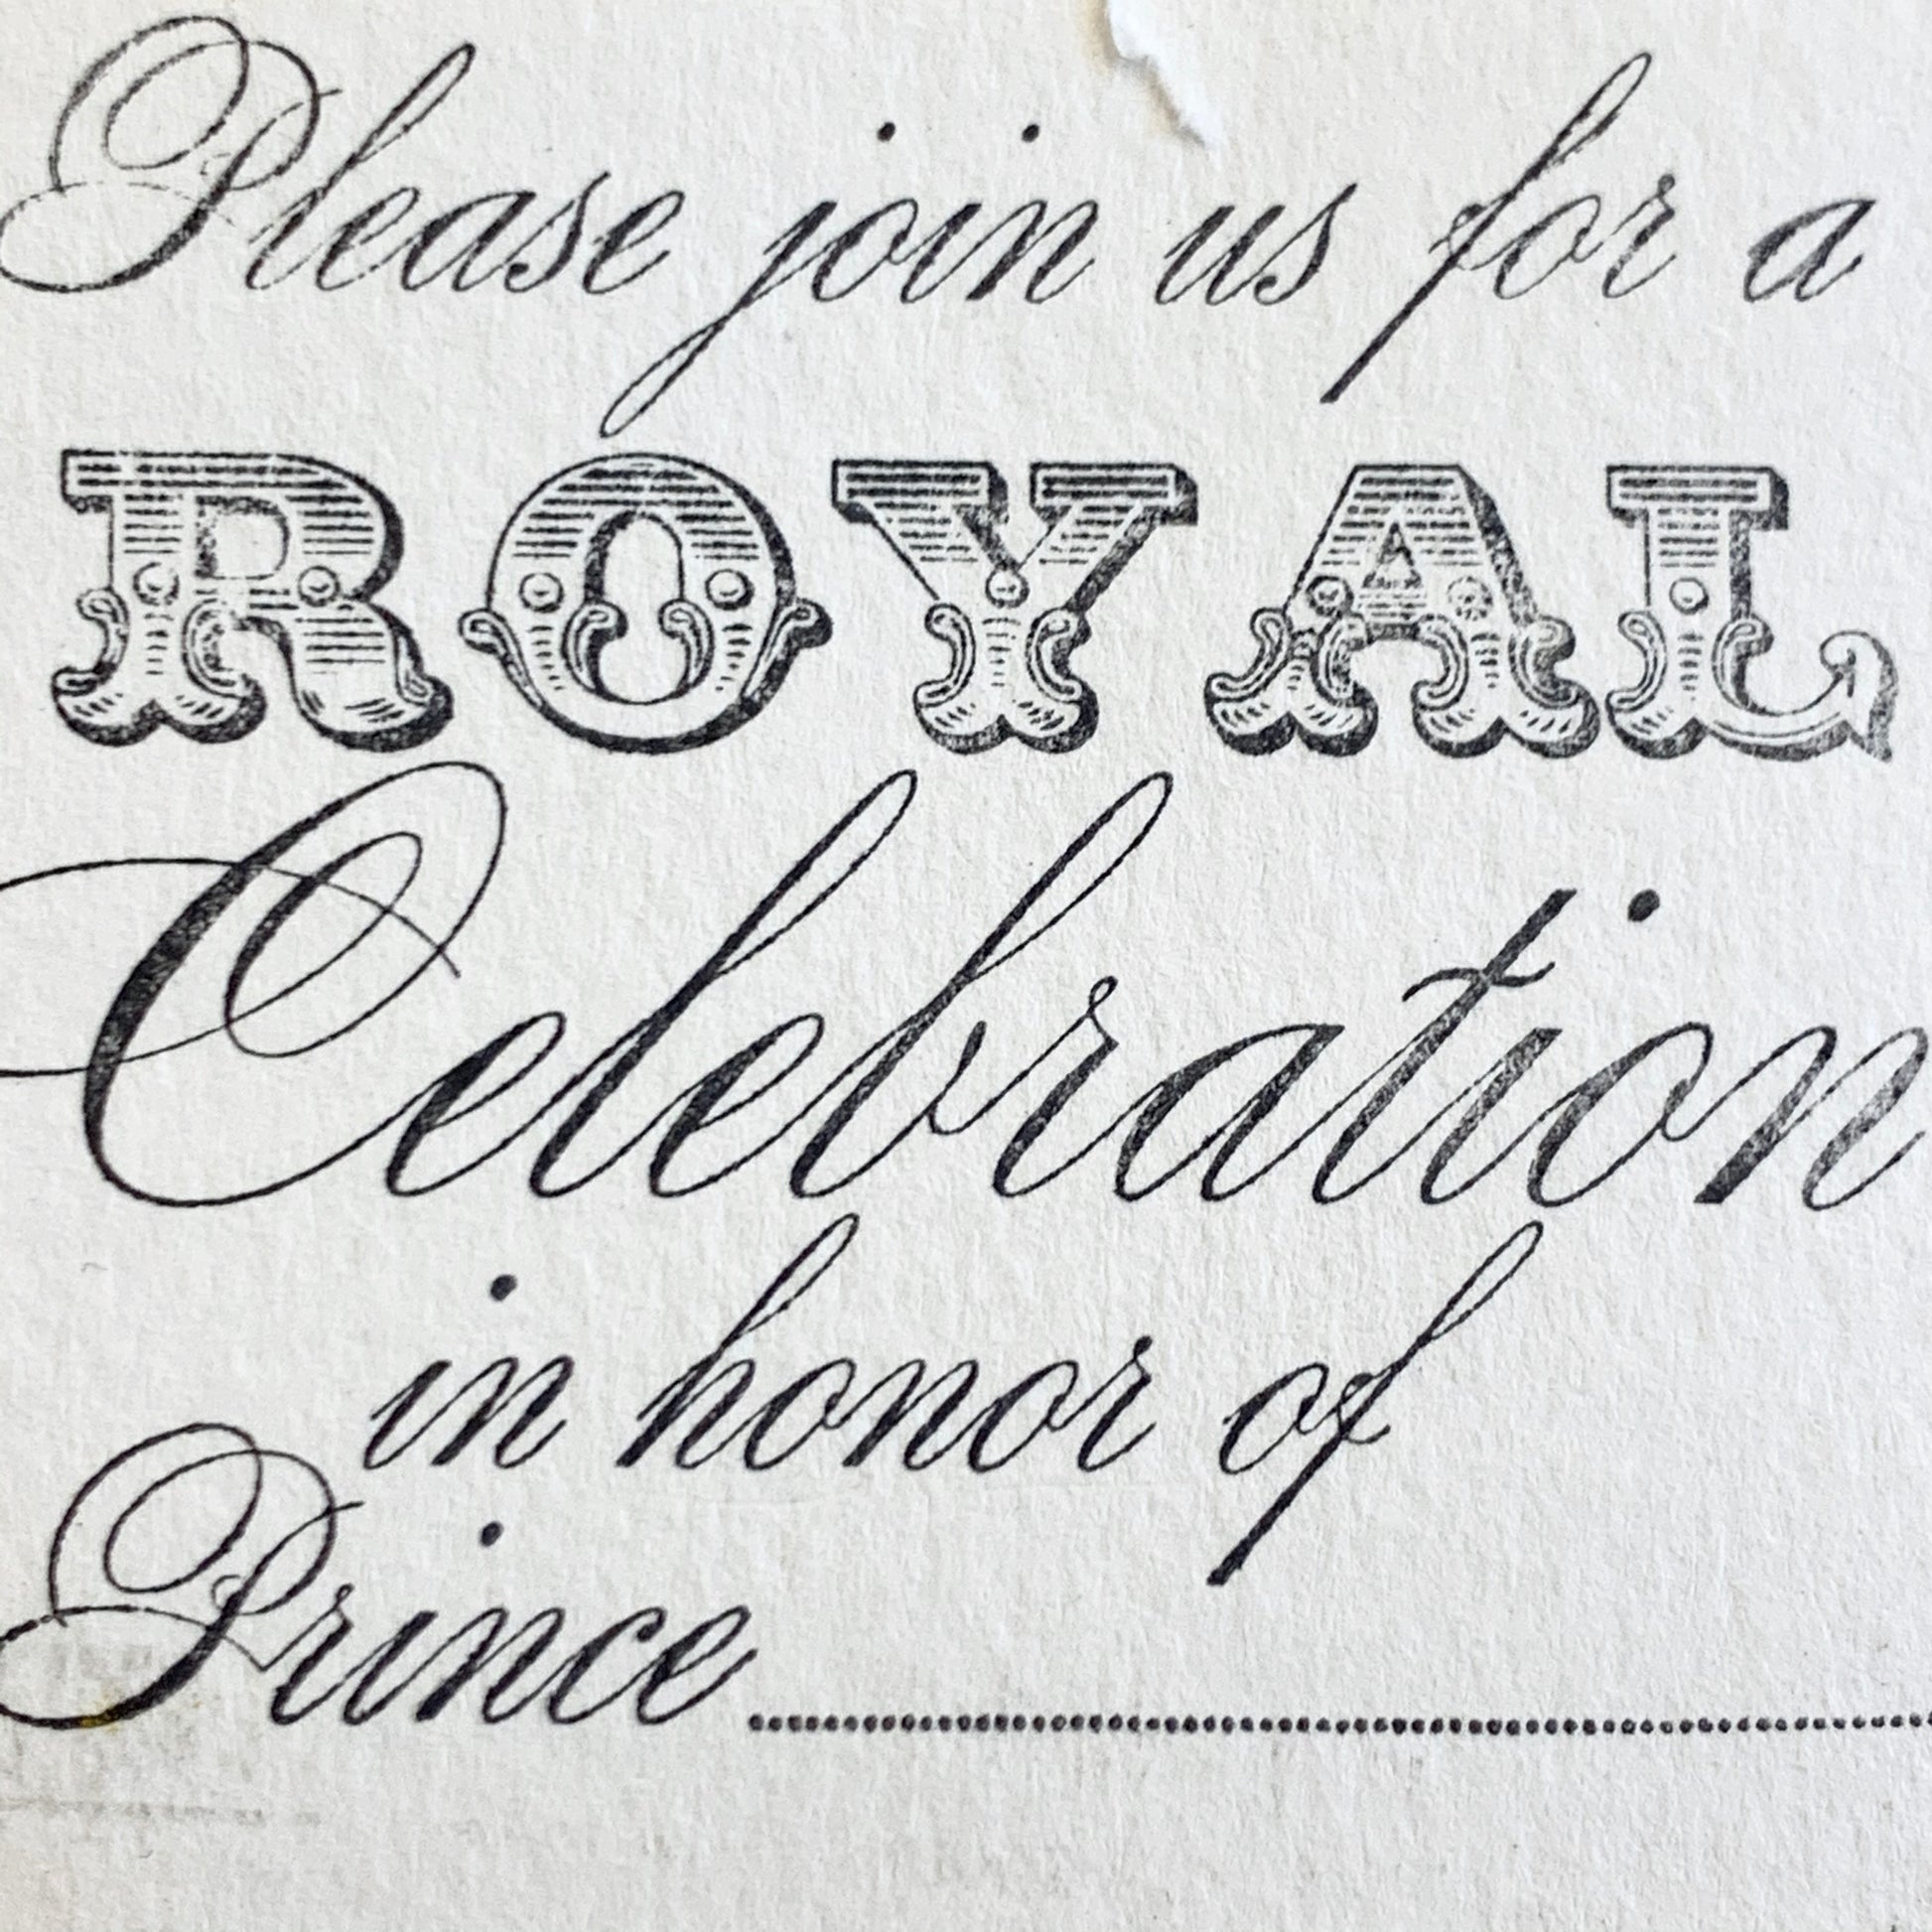 Please join us for a
ROYAL
Celebration
in honor of
Prince ........................................